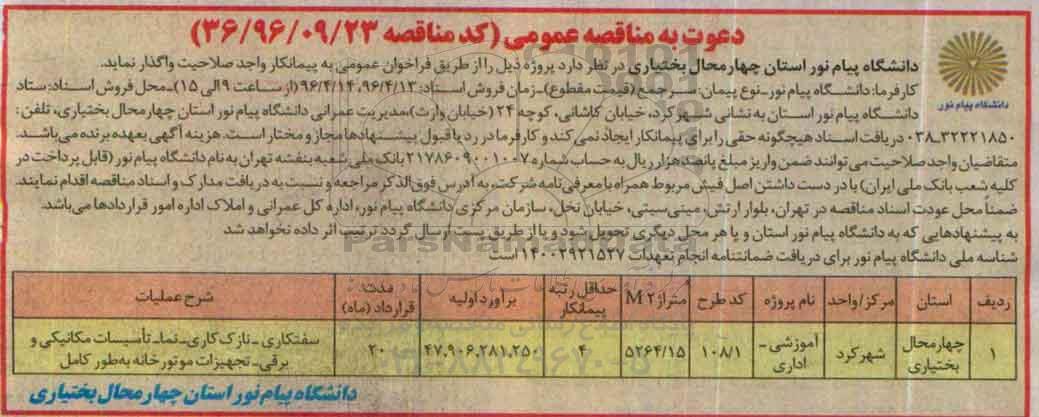 دعوت به مناقصه عمومی (کد مناقصه ۳۶/۹۶/۰۹/۲۳)
دانشگاه پیام نور
دانشگاه پیام نور استان چهارمحال بختیاری در نظر دارد پروژه ذیل را از طریق فراخوان عمومی به پیمانکار واجد صلاحیت واگذار نماید.
کارفرما: دانشگاه پیام نور-نوع پیمان: سرجمع (قیمت مقطوع)-زمان فروش اسناد: ۹۶/۴/۱۴،۹۶/۴/۱۳ (از ساعت ۹ الی ۱۵)-محل فروش اسناد: ستاد
دانشگاه پیام نور استان به نشانی شهرکرد، خیابان کاشانی، کوچه ۲۴ (خیابان وارث)، مدیریت عمرانی دانشگاه پیام نور استان چهارمحال بختیاری، تلفن:
۰۳۸-۳۲۲۲۱۸۵۰ دریافت اسناد هیچگونه حقی را برای پیمانکار ایجاد نمی کند و کارفرما در رد یا قبول پیشنهادها مجاز و مختار است. هزینه آگهی بعهده برنده می باشد.
متقاضیان واجد صلاحیت می توانند ضمن واریز مبلغ پانصد هزار ریال به حساب شماره ۲۱۷۸۶۰۹۰۰۱۰۰۷ بانک ملی شعبه بنفشه تهران به نام دانشگاه پیام نور (قابل پرداخت در
کلیه شعب بانک ملی ایران) با در دست داشتن اصل فیش مربوط همراه با معرفی نامه شرکت، به آدرس فوق الذکر مراجعه و نسبت به دریافت مدارک و اسناد مناقصه اقدام نمایند.
ضمناً محل عودت اسناد مناقصه در تهران، بلوار ارتش، مینی سیتی، خیابان نخل، سازمان مرکزی دانشگاه پیام نور، اداره کل عمرانی و املاک اداره امور قراردادها می باشد.
به پیشنهادهایی که به دانشگاه پیام نور استان و یا هر محل دیگری تحویل شود و یا از طریق پست ارسال گردد ترتیب اثر داده نخواهد شد
شناسه ملی دانشگاه پیام نور برای دریافت ضمانتنامه انجام تعهدات ۱۴۰۰۲۹۲۱۵۲۷ است
ParsNamaddata
ردیف استان مرکز/واحد نام پروژه کد طرح متراژ M۲ حداقل رتبه پیمانکار برآورد اولیه مدت قرارداد (ماه) شرح عملیات
۱ چهارمحال بختیاری شهرکرد آموزشی-اداری ۱۰۸/۱ ۵۲۶۴/۱۵ ۴ ۴۷.۹۰۶.۲۸۱.۲۵۰ ۲۰ سفتکاری-نازک کاری-نما-تأسیسات مکانیکی و برقی-تجهیزات موتورخانه به طور کامل
دانشگاه پیام نور استان چهارمحال بختیاری